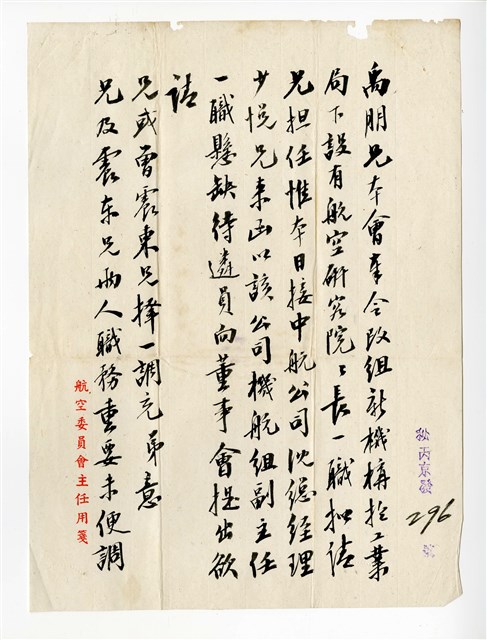 禹朋兄本會奉令改組新機構於工業
局下設有航空研究院〻長一職擬請
兄担任惟本日接中航公司沈總經理
少悅兄來函以該公司機航組副主任
一職懸缺待遴員向董事會提出欲
請
兄或曾震東兄擇一調充弟意
兄及震东兄兩人職務重要未便調
航空委員會主任用箋
秘丙京發
296
號